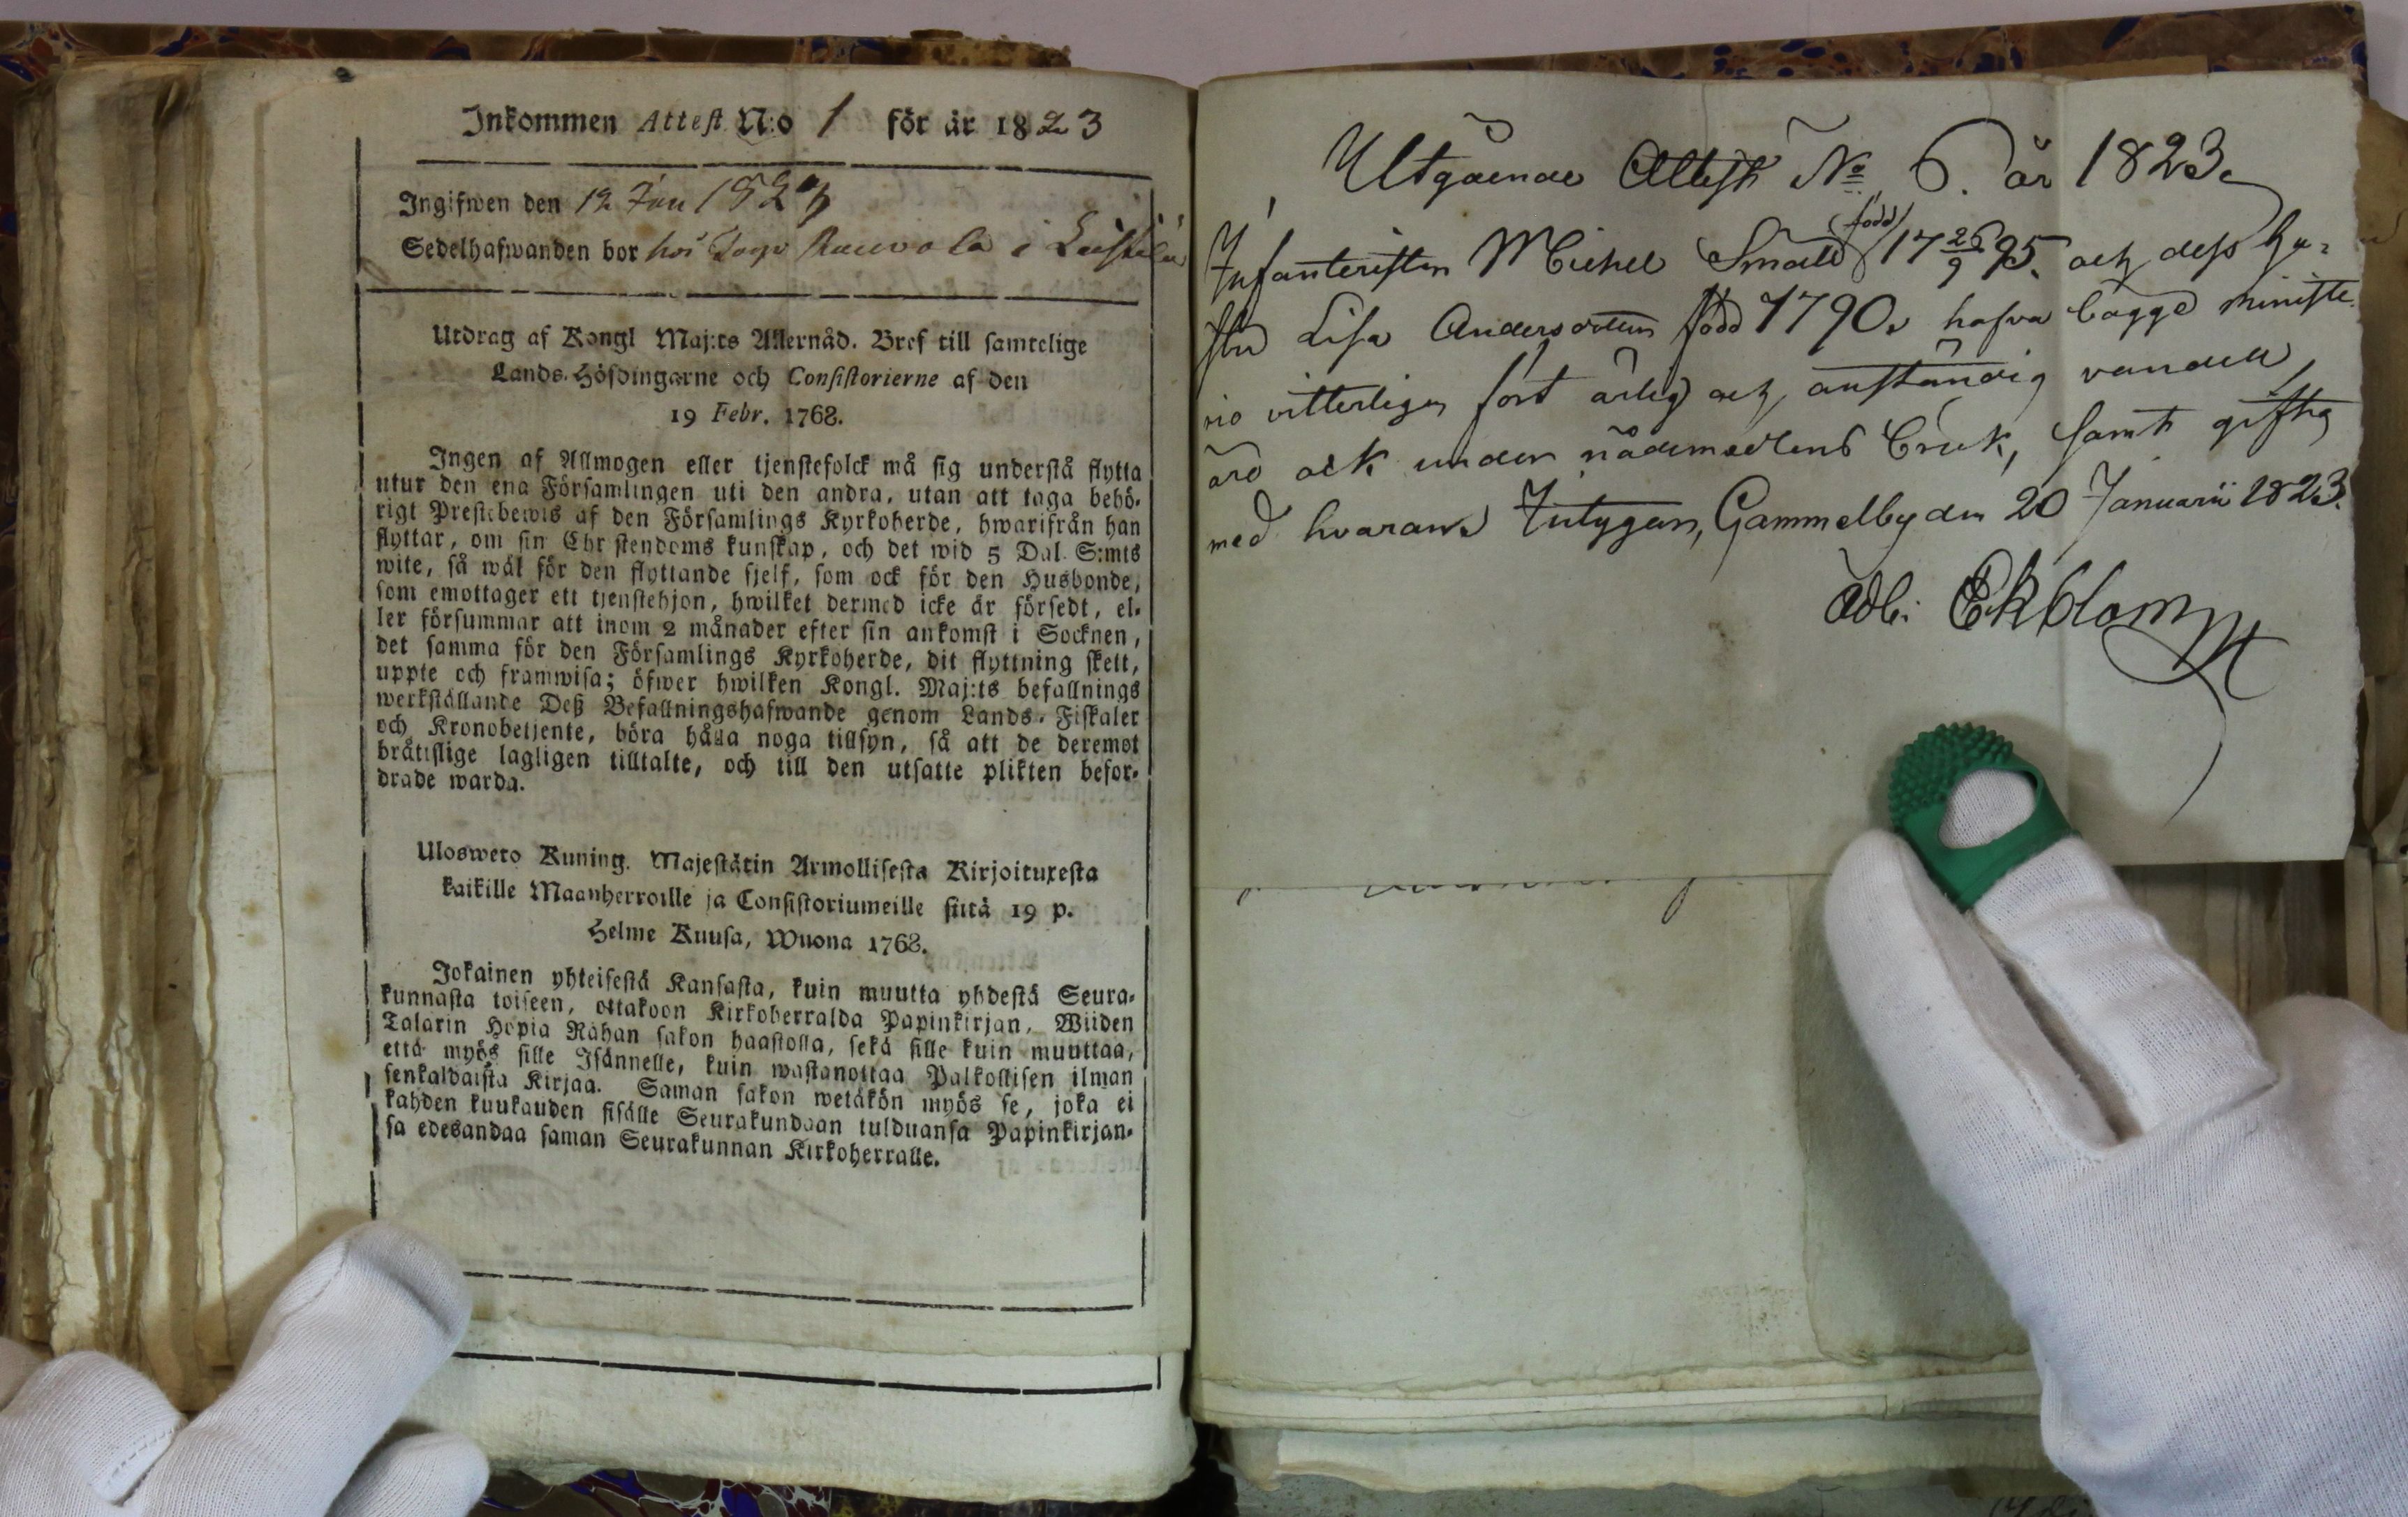 Inkommen Attest N:o 1 för år 1823
Ingifwen den 12 Jan 1823
Sedelhafwanden bor hos Torp i
Utdrag af Kongl Maj:ts Allernåd. Bref till samtelige
Lands-Höfdingarne och Consistorierne af den
19 Febr. 1768.
Ingen af Allmogen eller tjenstefolck må sig understå flytta
utur den ena Församlingen uti den andra, utan att taga behö-
rigt Prestebewis af den Församlings Kyrkoherde, hwarifrån han
flyttar, om sin Christendoms kunskap, och det wid 5 Dal. S:mts
wite, så wäl för den flyttande sjelf, som ock för den Husbonde,
som emottager ett tjenstehjon, hwilket dermed icke är försedt, el-
ler försummar att inom 2 månader efter sin ankomst i Socknen,
det samma för den Församlings Kyrkoherde, dit flyttning skett,
uppte och framwisa; öfwer hwilken Kongl. Maj:ts befallnings
werkställande Deß Befallningshafwande genom Lands-Fiskaler
och Kronobetjente, böra hålla noga tillsyn, så att de deremot
bråtislige lagligen tilltalte, och till den utsatte plikten befor-
drade warda.
Ulosweto Kuning. Majestätin Armollisesta Kirjoituxesta
kaikille Maanherroille ja Consistoriumeille siitä 19 p.
Helme Kuusa, Wuona 1768.
Jokainen yhteisestä Kansasta, kuin muutta yhdestä Seura-
kunnasta toiseen, ottakoon Kirkoherralda Papinkirjan, Wiiden
Talarin Hopia Rahan sakon haastolla, sekä sille kuin muuttaa,
että myös sille Isännelle, kuin wastanottaa Palkollisen ilman
senkaldaista Kirjaa. Saman sakon wetäkön myös se, joka ei
kahden kuukauden sisälle Seurakundaan tulduansa Papinkirjan-
sa edesandaa saman Seurakunnan Kirkoherralle.
Utgående Attest No 6. år 1823.
Infanteristen Michel Småld född 17 26/9 95. och dess hu-
stru Lisa Andersdotter född 1790, hafva bägge ministe-
rio vitterligen fört ärlig och anständig vandel
äro ock under nådemedlens bruk, samt gifta
med hvarann. Intygar, Gammelby den 20 Januarii 1823.
Adb: Ekblom